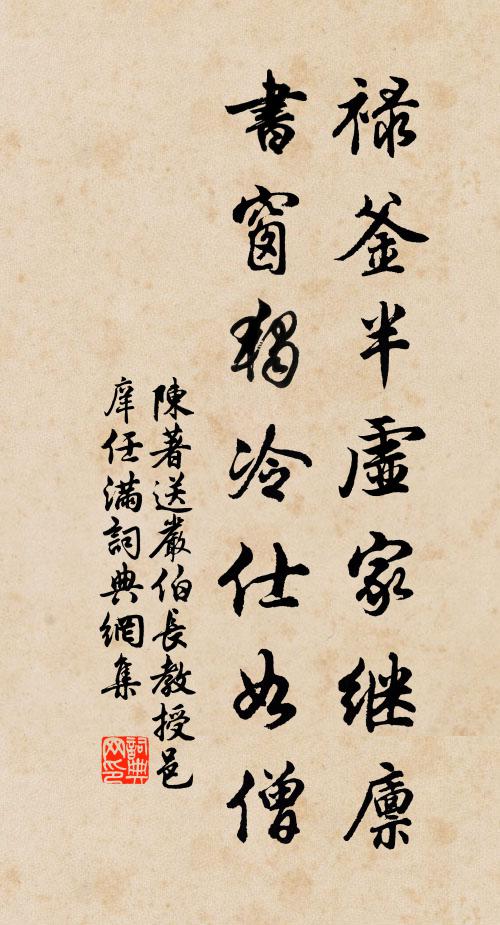 禄釜半虛家继廪
書窗獨冷仕如僧
陳著送嚴伯長教授邑
庠任滿詞典網集
詞典網印